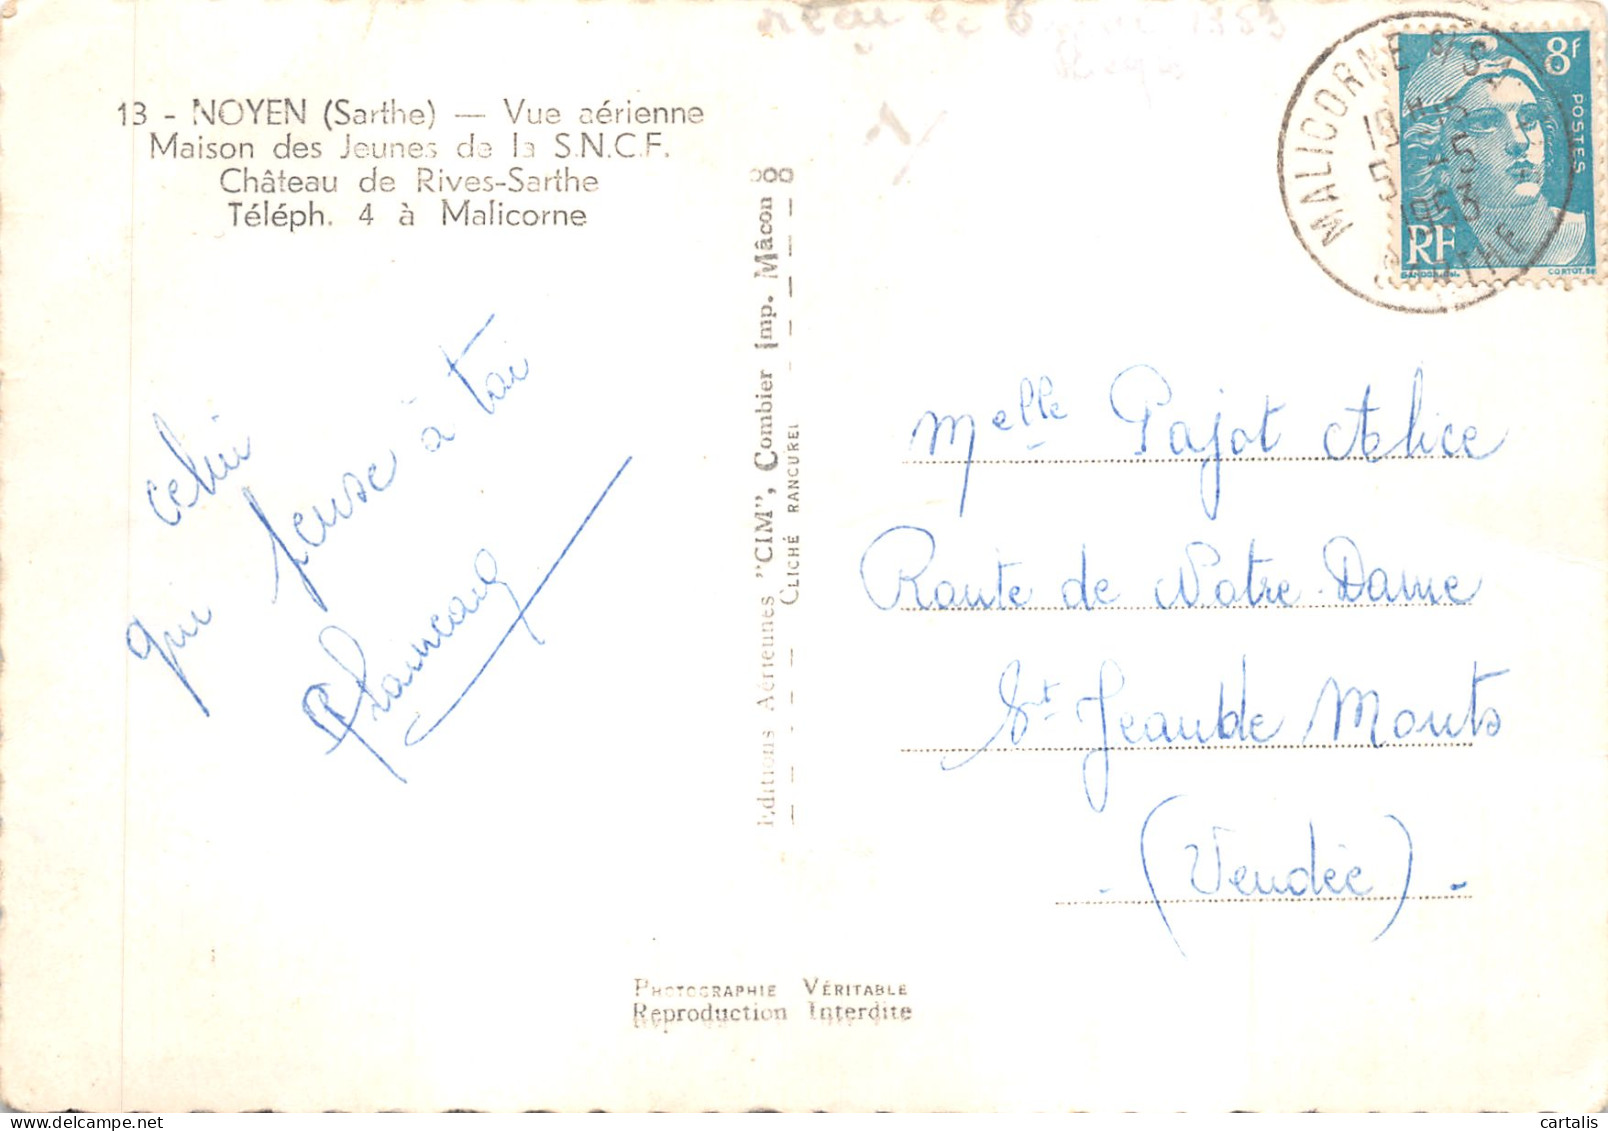 13 - NOYEN (Sarthe) — Vue aérienne
Maison des Jeunes de la S.N.C.F.
Château de Rives-Sarthe
Téléph. 4 à Malicorne
celui
qui pense à toi
Editions Aériennes "CIM", Combier Imp. Mâcon
CLICHÉ RANCUREL
PHOTOGRAPHIE VÉRITABLE
Reproduction Interdite
1953
MALICORNE S/S
SARTHE
8F
POSTES
RF
GANDON
CORTOT
Melle Pajot Alice
Route de Notre-Dame
St Jean de Monts
(Vendée)
cartalis